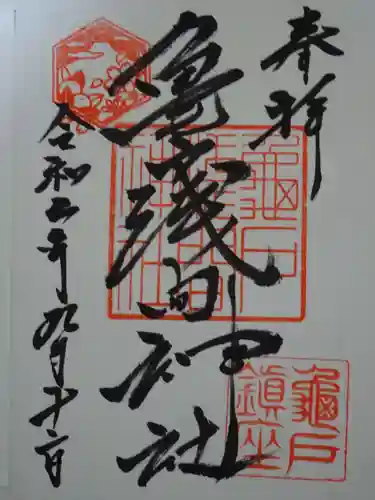 奉拝
亀戸浅間神社
令和二年九月十二日
龜戸
鎮座